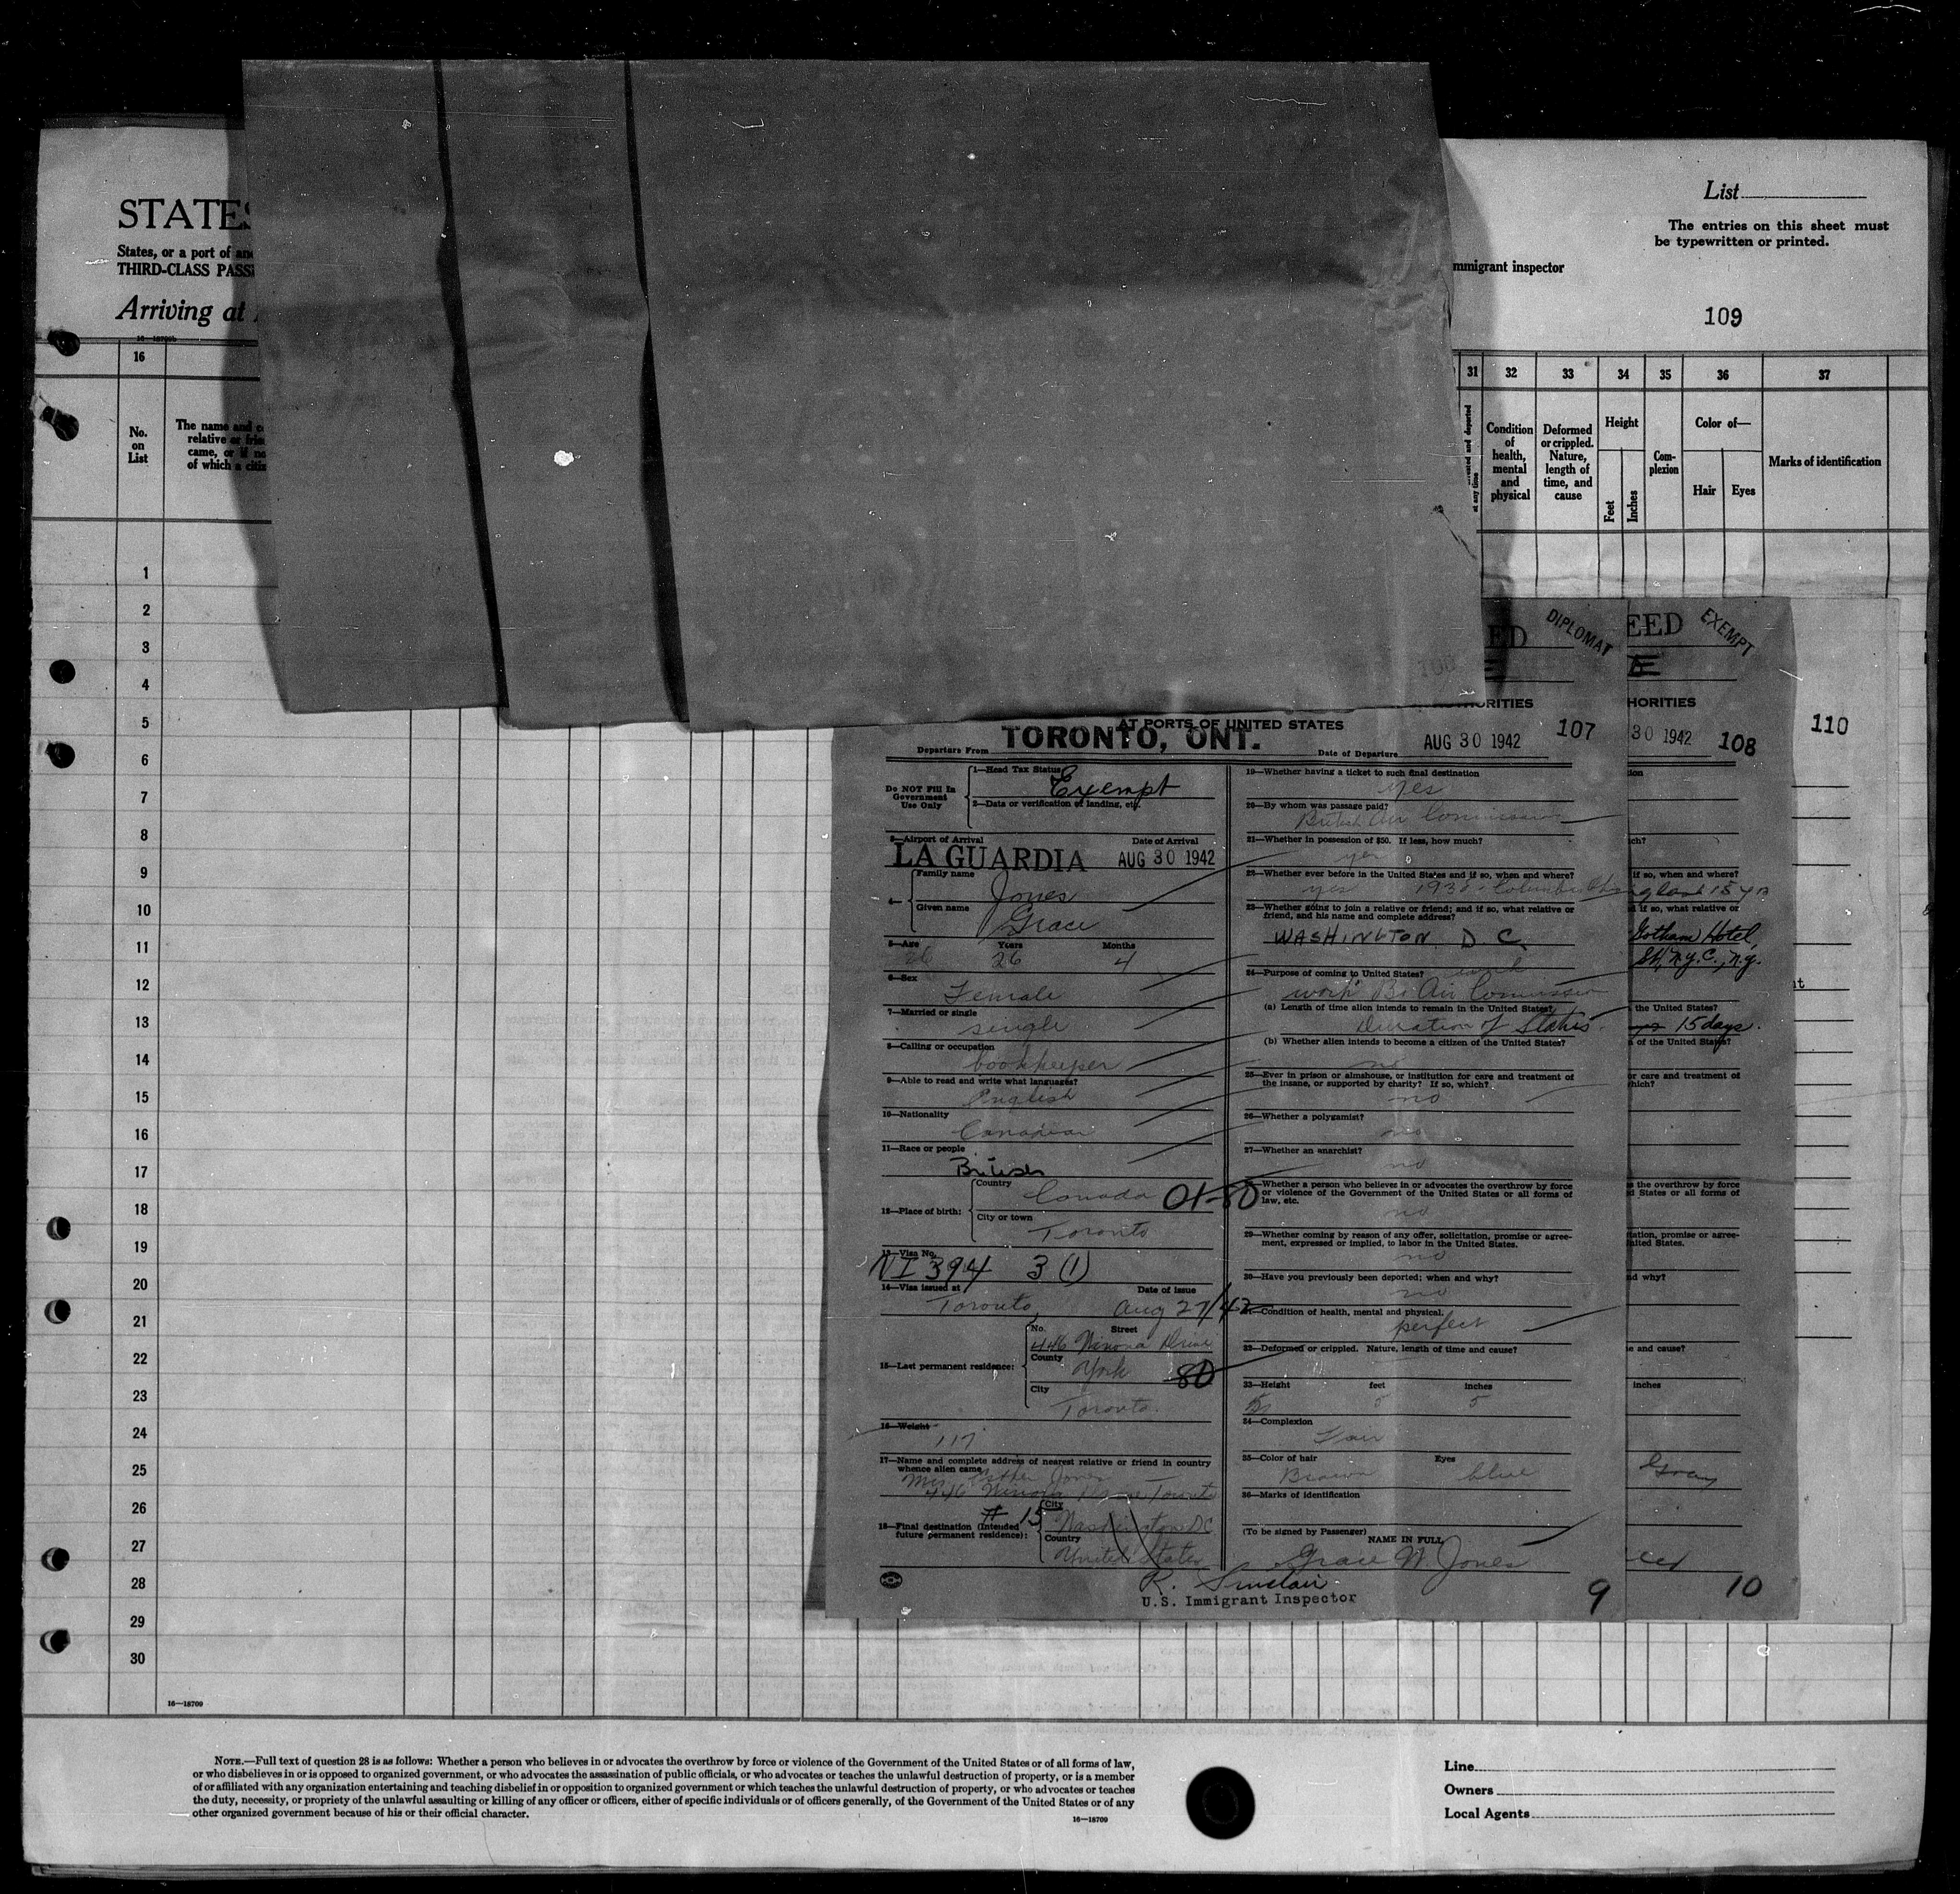 STATES
States, or a port of
THIRD-CLASS
Arriving at
16—18709
List
The entries on this sheet must
be typewritten or printed.
immigrant inspector
109
16
31
32
33
34
35
36
37
No.
on
List
The name and
relative or
came, or if
of which a
at any time
Condition
of
health,
mental
and
physical
Deformed
or crippled.
Nature,
length of
time, and
cause
Height
Feet
Inches
Com-
plexion
Color of—
Hair
Eyes
Marks of identification
1
2
3
4
5
6
7
8
9
10
11
12
13
14
15
16
17
18
19
20
21
22
23
24
25
26
27
28
29
30
16—18709
DIPLOMAT
EXEMPT
107
108
110
AT PORTS OF UNITED STATES
Departure From TORONTO, ONT. Date of Departure AUG 30 1942
Do NOT Fill In
Government
Use Only
1—Head Tax Status
Exempt
2—Data or verification of landing, etc.
3—Airport of Arrival Date of Arrival
LA GUARDIA AUG 30 1942
4—
Family name
Jones
Given name
Grace
5—Age Years Months
26 26 4
6—Sex
Female
7—Married or single
single
8—Calling or occupation
bookkeeper
9—Able to read and write what languages?
English
10—Nationality
Canadian
11—Race or people
British
12—Place of birth:
Country
Canada 01-80
City or town
Toronto
13—Visa No.
NI 394 3(1)
14—Visa issued at Date of issue
Toronto, Aug 27/42
15—Last permanent residence:
No. Street
446 Winona Drive
County
York 80
City
Toronto
16—Weight
117
17—Name and complete address of nearest relative or friend in country
whence alien came.
Mrs. Esther Jones
446 Winona Drive Toronto
# 15
18—Final destination (Intended
future permanent residence):
City
Washington DC
Country
United States
19—Whether having a ticket to such final destination
yes
20—By whom was passage paid?
British Air Commission
21—Whether in possession of $50. If less, how much?
yes
22—Whether ever before in the United States and if so, when and where?
yes
23—Whether going to join a relative or friend; and if so, what relative or
friend, and his name and complete address?
WASHINGTON D C
24—Purpose of coming to United States?
work Br Air Commission
(a) Length of time alien intends to remain in the United States?
Duration of Status
(b) Whether alien intends to become a citizen of the United States?
no
25—Ever in prison or almshouse, or institution for care and treatment of
the insane, or supported by charity? If so, which?
no
26—Whether a polygamist?
no
27—Whether an anarchist?
no
28—Whether a person who believes in or advocates the overthrow by force
or violence of the Government of the United States or all forms of
law, etc.
no
29—Whether coming by reason of any offer, solicitation, promise or agree-
ment, expressed or implied, to labor in the United States.
no
30—Have you previously been deported; when and why?
no
31—Condition of health, mental and physical.
perfect
32—Deformed or crippled. Nature, length of time and cause?
33—Height feet inches
5 5
34—Complexion
Fair
35—Color of hair Eyes
Brown blue
36—Marks of identification
(To be signed by Passenger)
NAME IN FULL
Grace W. Jones
R. Sinclair
U.S. Immigrant Inspector
9
HORITIES
30 1942
if so, when and where?
if so, what relative or
Gotham Hotel,
St, N.Y.C., N.Y.
the United States?
15 days.
of the United States?
or care and treatment of
which?
the overthrow by force
States or all forms of
promise or agree-
United States.
and why?
and cause?
inches
Gray
10
NOTE.—Full text of question 28 is as follows: Whether a person who believes in or advocates the overthrow by force or violence of the Government of the United States or of all forms of law,
or who disbelieves in or is opposed to organized government, or who advocates the assassination of public officials, or who advocates or teaches the unlawful destruction of property, or is a member
of or affiliated with any organization entertaining and teaching disbelief in or opposition to organized government or which teaches the unlawful destruction of property, or who advocates or teaches
the duty, necessity, or propriety of the unlawful assaulting or killing of any officer or officers, either of specific individuals or of officers generally, of the Government of the United States or of any
other organized government because of his or their official character.
16—18709
Line
Owners
Local Agents